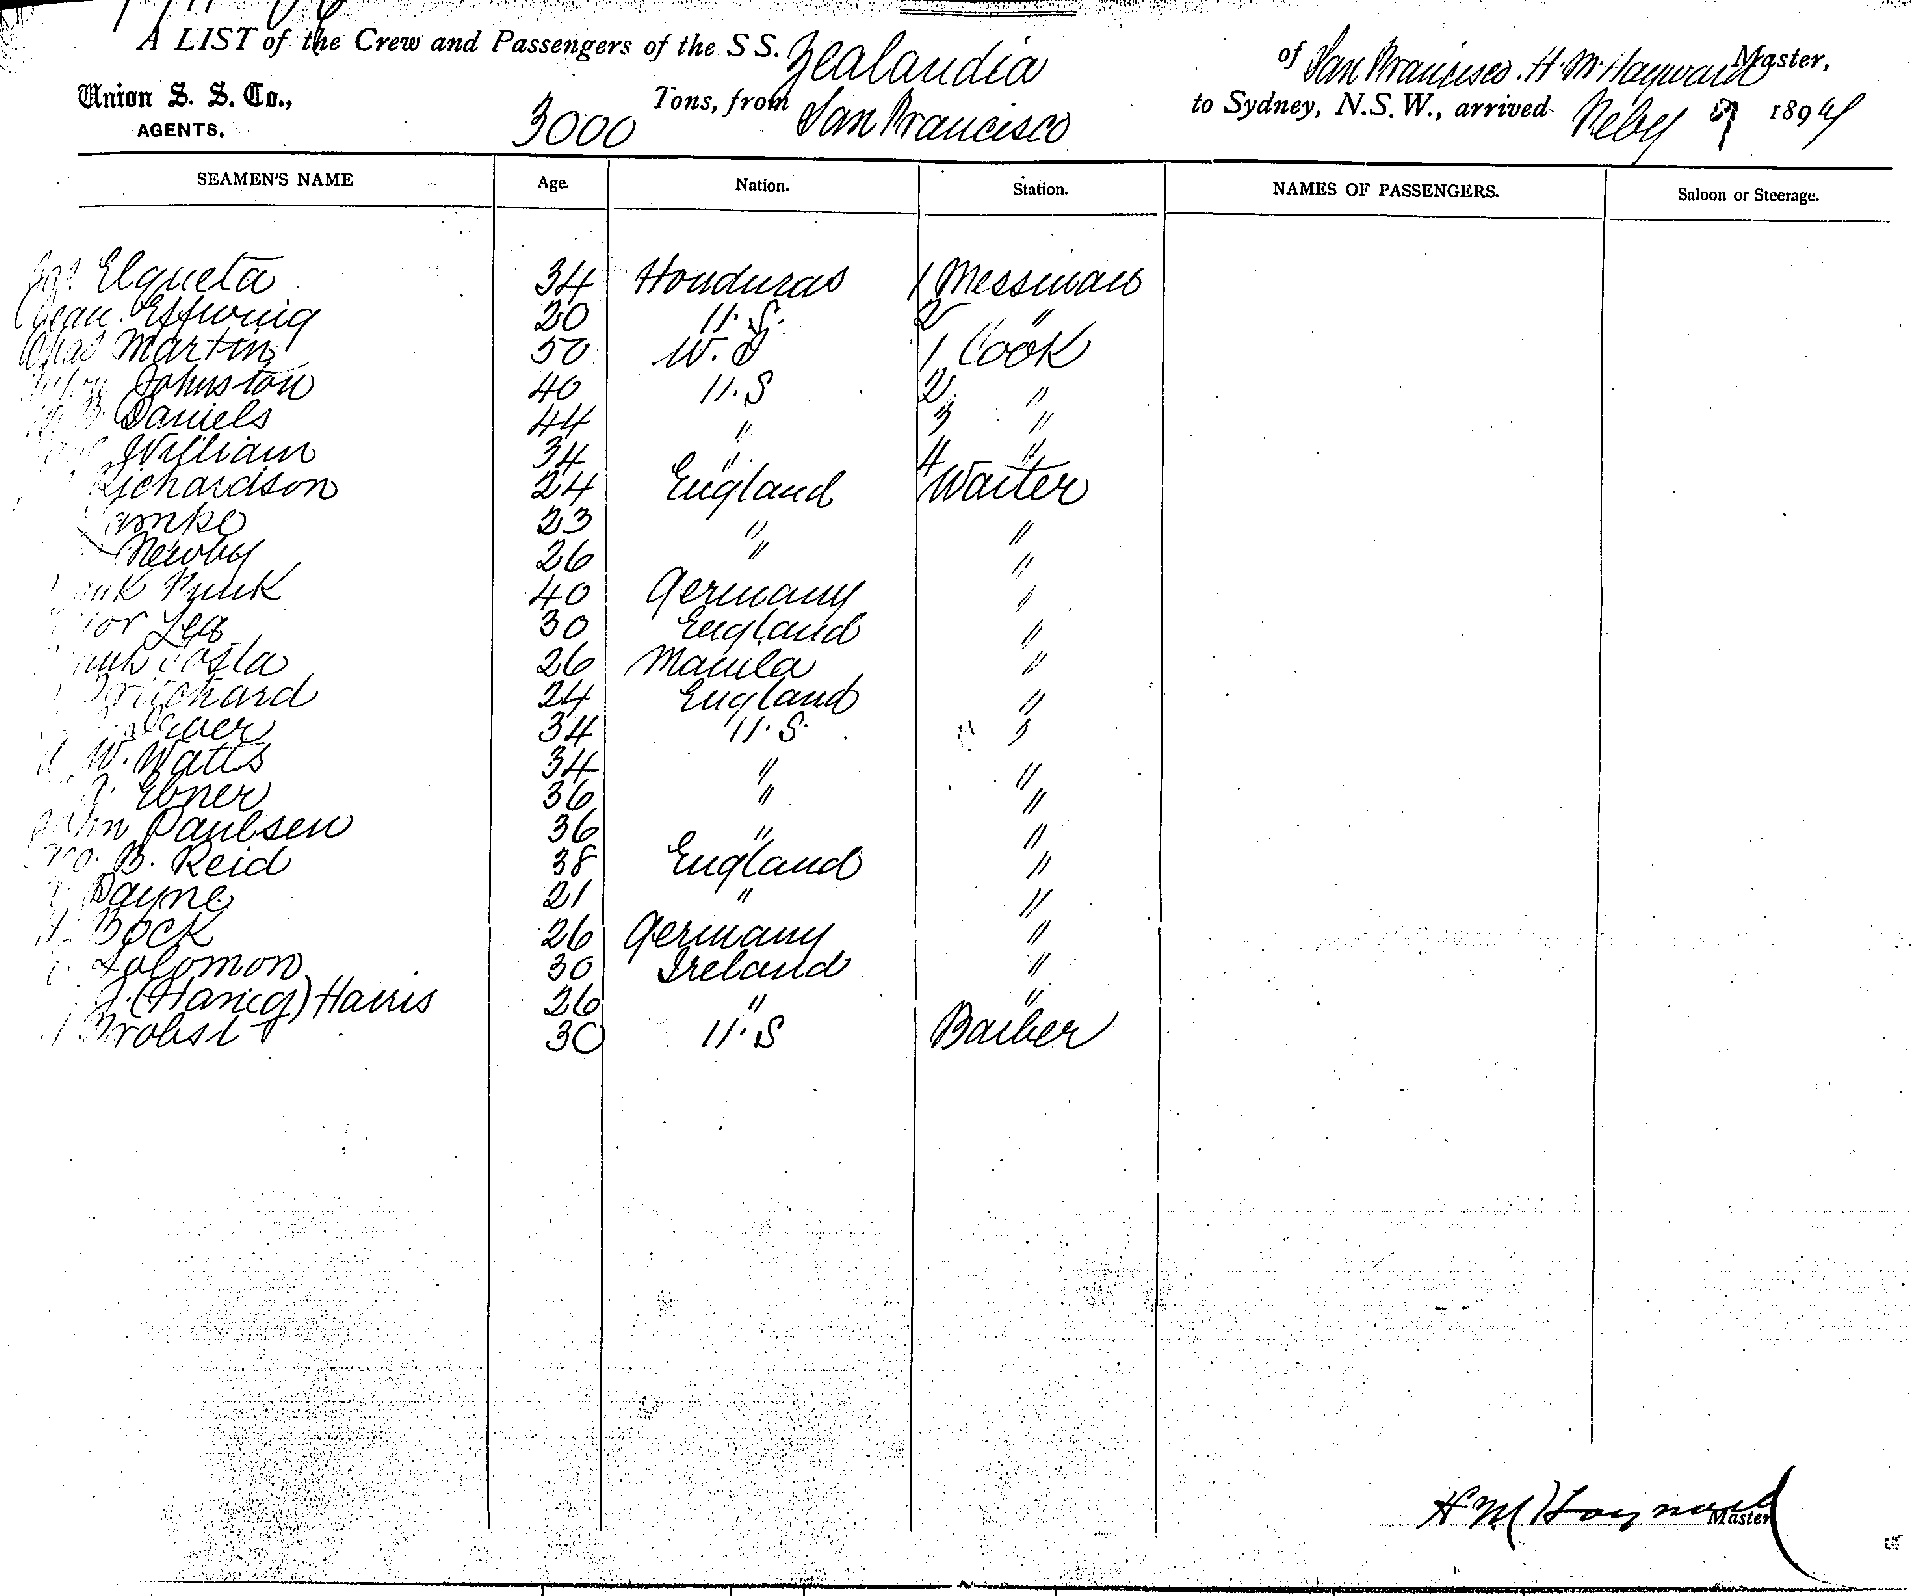 A LIST of the Crew and Passengers of the SS. Zealandia of San Francisco. H. M. Hayward Master,
Union S. S. Co.,
AGENTS.
3000 Tons, from San Francisco to Sydney, N.S.W., arrived Feby 1894
SEAMEN'S NAME Age. Nation. Station. NAMES OF PASSENGERS. Saloon or Steerage.
Elqueta 34 Honduras 1 Messman
20 U.S. 2 "
Chas Martin 50 W.I 1 Cook
Johnston 40 U.S 2 "
Daniels 44 " 3 "
William 34 " 4 "
Richardson 24 England Waiter
23 " "
Newby 26 " "
40 Germany "
Lea 30 England "
Costa 26 Manila "
Pritchard 24 England "
34 U.S. "
W. Watts 34 " "
Ebner 36 " "
John Paulsen 36 " "
Geo. B. Reid 38 England "
Payne 21 " "
H. Bock 26 Germany "
Solomon 30 Ireland "
J. (Haricq) Harris 26 " "
Probst 30 U.S Barber
H M Hayward
Master